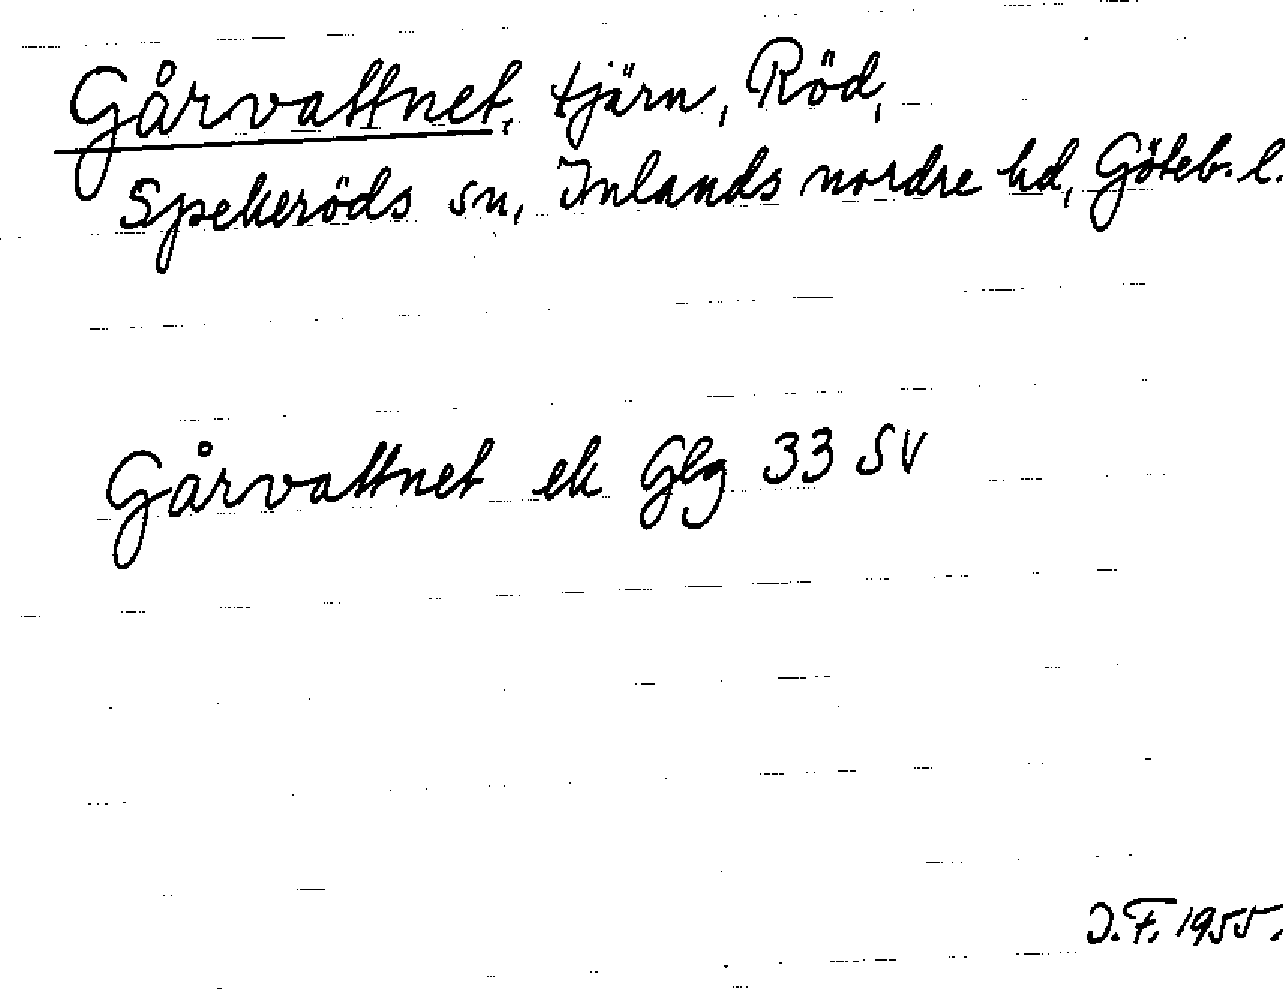 Gårvattnet, tjärn, Röd,
Spekeröds sn, Inlands nordre hd, Göteb. l.
Gårvattnet ek Glg 33 SV
J.F. 1955.